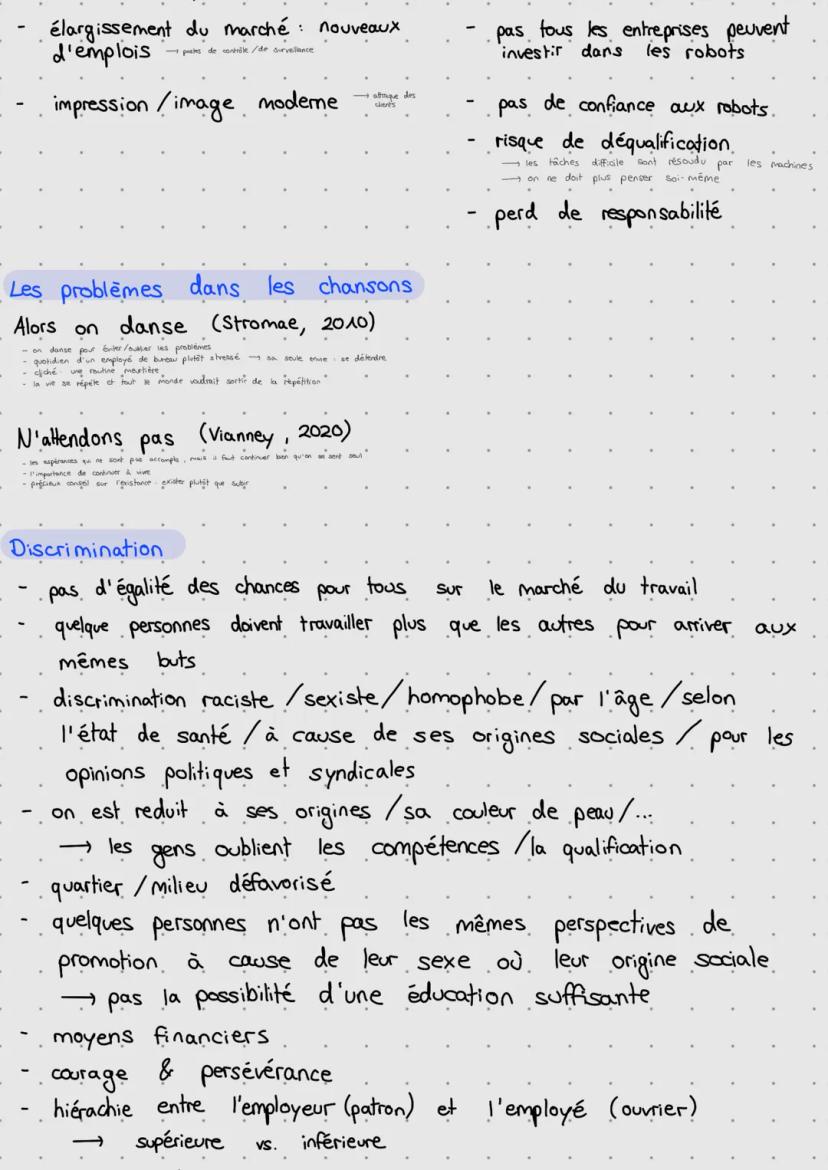 - élargissement du marché : nouveaux
d'emplois → postes de contrôle /de surveillance
- impression /image moderne → attaque des
clients
- pas tous les entreprises peuvent
investir dans les robots
- pas de confiance aux robots
- risque de déqualification
→ les tâches difficile sont résoudu par les machines
→ on ne doit plus penser soi-même
- perd de responsabilité
Les problèmes dans les chansons
Alors on danse (Stromae, 2010)
- on danse pour éviter/oublier les problèmes
- quotidien d'un employé de bureau plutôt stressé → sa seule envie : se détendre
- cliché : une routine meurtière
- la vie se répète et tout le monde voudrait sortir de la répétition
N'attendons pas (Vianney, 2020)
- les espérances qui ne sont pas accomplis, mais il faut continuer bien qu'on se sent seul
- l'importance de continuer à vivre
- précieux conseil sur l'existance : exister plutôt que subir
Discrimination
- pas d'égalité des chances pour tous sur le marché du travail
- quelque personnes doivent travailler plus que les autres pour arriver aux
mêmes buts
- discrimination raciste /sexiste/homophobe/par l'âge/selon
l'état de santé /à cause de ses origines sociales / pour les
opinions politiques et syndicales
- on est reduit à ses origines /sa couleur de peau/...
→ les gens oublient les compétences /la qualification
- quartier /milieu défavorisé
- quelques personnes n'ont pas les mêmes perspectives de
promotion à cause de leur sexe où leur origine sociale
→ pas la possibilité d'une éducation suffisante
- moyens financiers
- courage & persévérance
- hiérachie entre l'employeur (patron) et l'employé (ouvrier)
→ supérieure vs. inférieure